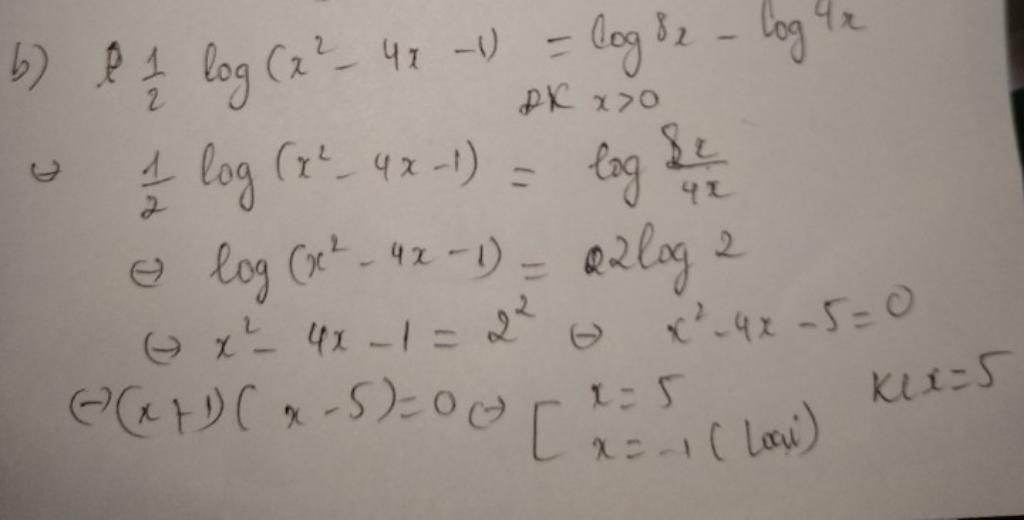 b) 1/2 log(x² - 4x - 1) = log 8x - log 4x
ĐK x>0
⇔ 1/2 log(x² - 4x - 1) = log 8x/4x
⇔ log(x² - 4x - 1) = 2log 2
⇔ x² - 4x - 1 = 2² ⇔ x² - 4x - 5 = 0
⇔ (x+1)(x - 5) = 0 ⇔ [ x = 5
x = -1 (loại)
KL x = 5